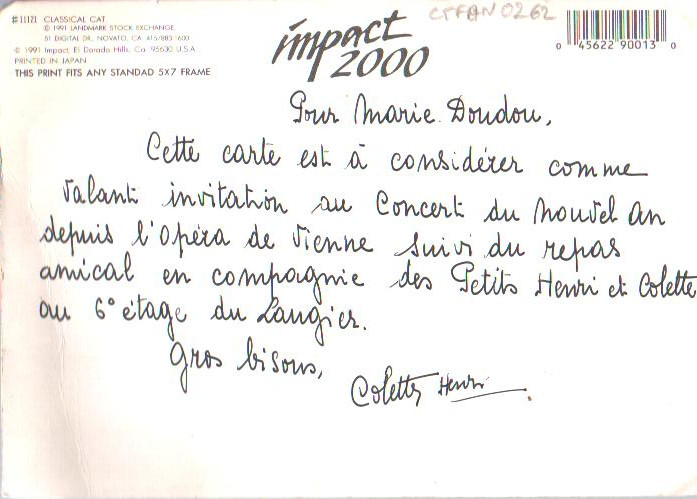 #11121 CLASSICAL CAT
© 1991 LANDMARK STOCK EXCHANGE
51 DIGITAL DR., NOVATO, CA 415/883-1600
© 1991 Impact, El Dorado Hills, Ca 95630 U.S.A.
PRINTED IN JAPAN
THIS PRINT FITS ANY STANDAD 5X7 FRAME
impact
2000
CPFAN 0262
0 45622 90013 0
Pour Marie Doudou,
Cette carte est à considérer comme
valant invitation au Concert du Nouvel An
depuis l'Opéra de Vienne suivi du repas
amical en compagnie des Petits Henri et Colette
au 6° étage du Laugier.
Gros bisous,
Colette Henri